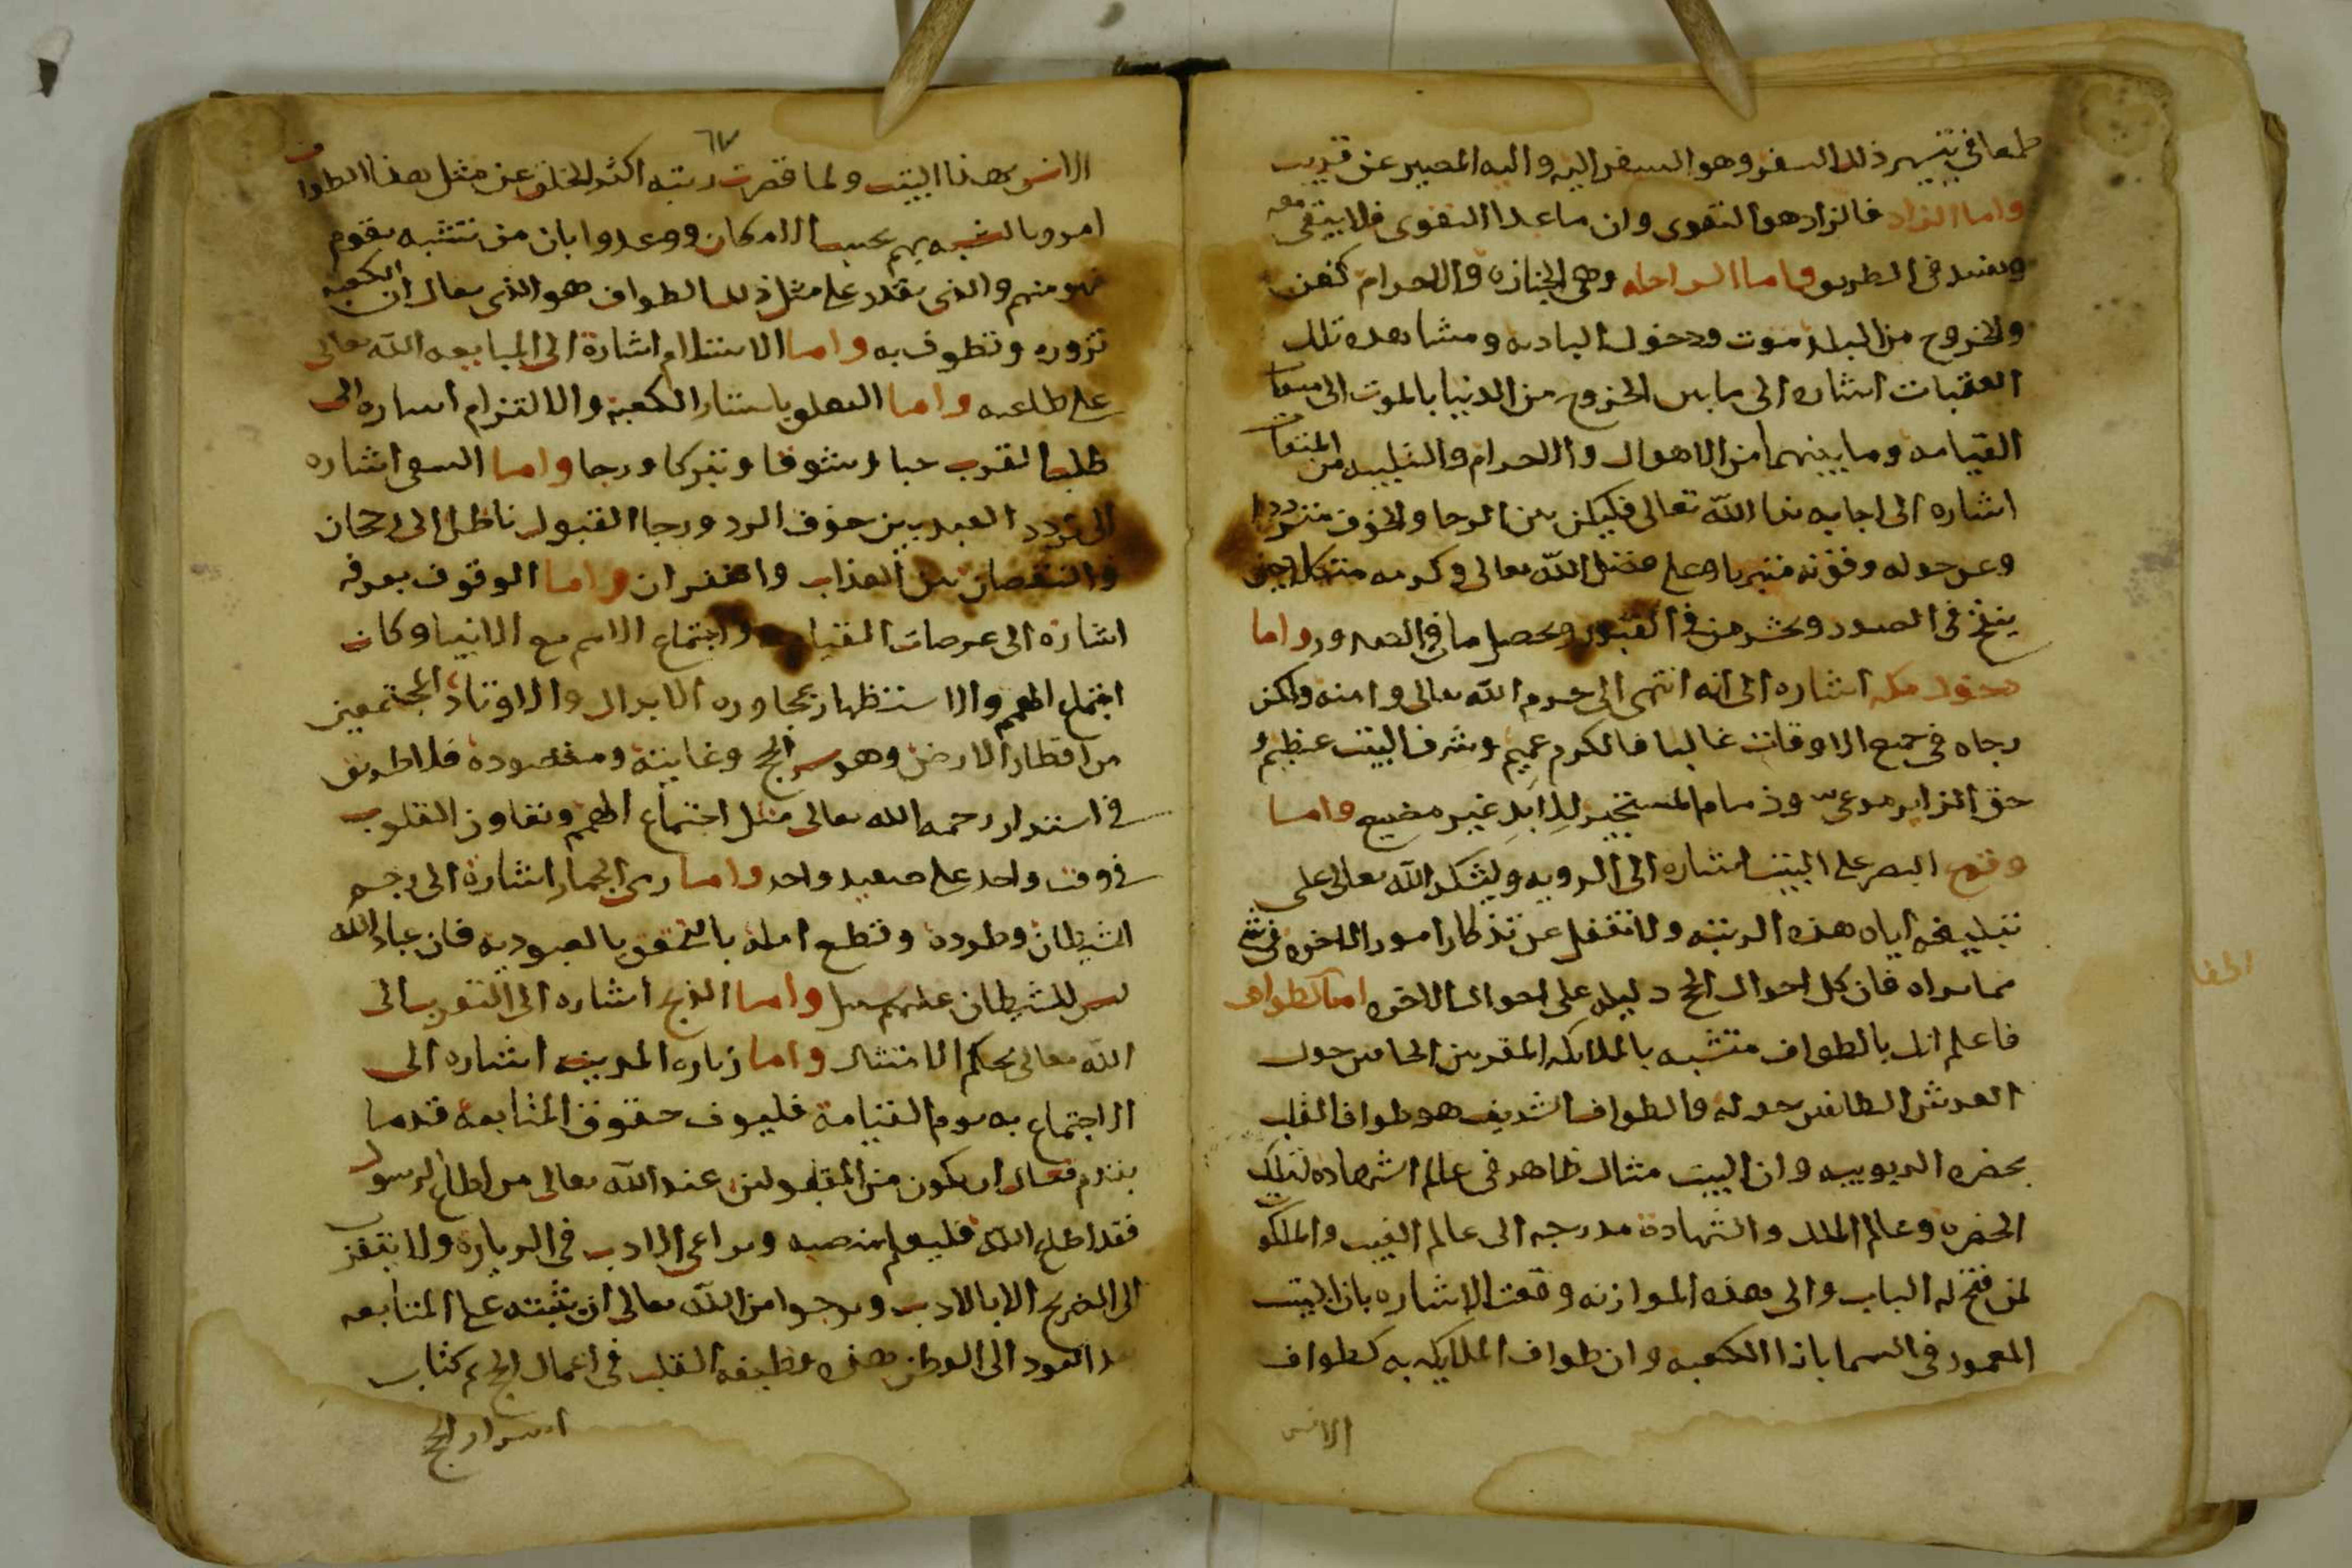 طمعا في تيسير ذلك السفر وهو السفر اليه واليه المصير عن قريب
واما الزاد فالزاد هو التقوى وان ما عدا التقوى فلا يبقى معه
ويفسد في الطريق واما الراحله وهي الجنازه والاحرام كفن
والخروج من البلد موت ودخول الباديه ومشاهده تلك
العقبات اشاره الى ما بين الخروج من الدنيا بالموت الى ميقات
القيامه وما بينهما من الاهوال والاحرام والتلبيه من الميقات
اشاره الى اجابه ندا الله تعالى فليكن بين الرجا والخوف مترددا
وعن حوله وقوته متبريا وعلى فضل الله تعالى وكرمه متكلا حين
ينفخ في الصور ويحشر من في القبور ويحصل ما في الصدور واما
دخول مكه اشاره الى انه انتهى الى حرم الله تعالى وامنه وليكن
رجاه في جميع الاوقات غالبا فالكرم عميم وشرف البيت عظيم و
حق الزاير مرعى وذمام المستجير اللايذ غير مضيع واما
وقوع البصر على البيت اشاره الى الرويه وليشكر الله تعالى على
تبليغه اياه هذه الرتبه ولا تغفل عن تذكار امور الاخره في شي
مما تراه فان كل احوال الحج دليل على احوال الاخره اما الطواف
فاعلم انك بالطواف متشبه بالملايكه المقربين الحافين حول
العرش الطائفين حوله والطواف الشريف هو طواف القلب
بحضره الربوبيه وان البيت مثال ظاهر في عالم الشهاده لتلك
الحضره وعالم الملك والشهادة مدرجه الى عالم الغيب والملكوت
لمن فتح له الباب والى هذه الموازنه وقعت الاشاره بان البيت
المعمور في السما بازا الكعبه وان طواف الملايكه به كطواف
الانس
٦٣
الانس بهذا البيت ولما قصرت رتبه اكثر الخلق عن مثل هذا الطواف
امروا بالتشبه بهم بحسب الامكان ووعدوا بان من تشبه بقوم
فهو منهم والذي يقدر على مثل ذلك الطواف هو الذي يقال ان الكعبه
تزوره وتطوف به واما الاستلام اشارة الى المبايعه الله تعالى
على طاعته واما التعلق باستار الكعبة والالتزام اشاره الى
طلب القرب حبا وشوقا وتبركا ورجا واما السعى اشاره
الى تردد العبد بين خوف الرد ورجا القبول ناظرا الى رجحان
والنقصان بين العذاب والغفران واما الوقوف بعرفه
اشارة الى عرصات القيامه واجتماع الامم مع الانبيا وكان
اجتماع الهمم والاستظهار بمجاوره الابدال والاوتاد المجتمعين
من اقطار الارض وهو سر الحج وغايته ومقصوده فلا طريق
في استدرار رحمه الله تعالى مثل اجتماع الهمم وتعاون القلوب
في وقت واحد على صعيد واحد واما رمى الجمار اشارة الى رجم
الشيطان وطرده وقطع امله بالتحقق بالعبوديه فان عباد الله
ليس للشيطان عليهم سبيل واما الذبح اشاره الى التقرب الى
الله تعالى بحكم الامتثال واما زياره المدينه اشاره الى
الاجتماع به يوم القيامة فليوف حقوق المتابعه قدما
بقدم فعساه ان يكون من المقبولين عند الله تعالى من اطاع الرسول
فقد اطاع الله فليعلم منصبه ويراعى الادب في الزيارة ولا يتقرب
الى الضريح الا بالادب ويرجوا من الله تعالى ان يثبته على المتابعه
بعد العود الى الوطن هذه وظيفه القلب في اعمال الحج تم كتاب
اسرار الحج